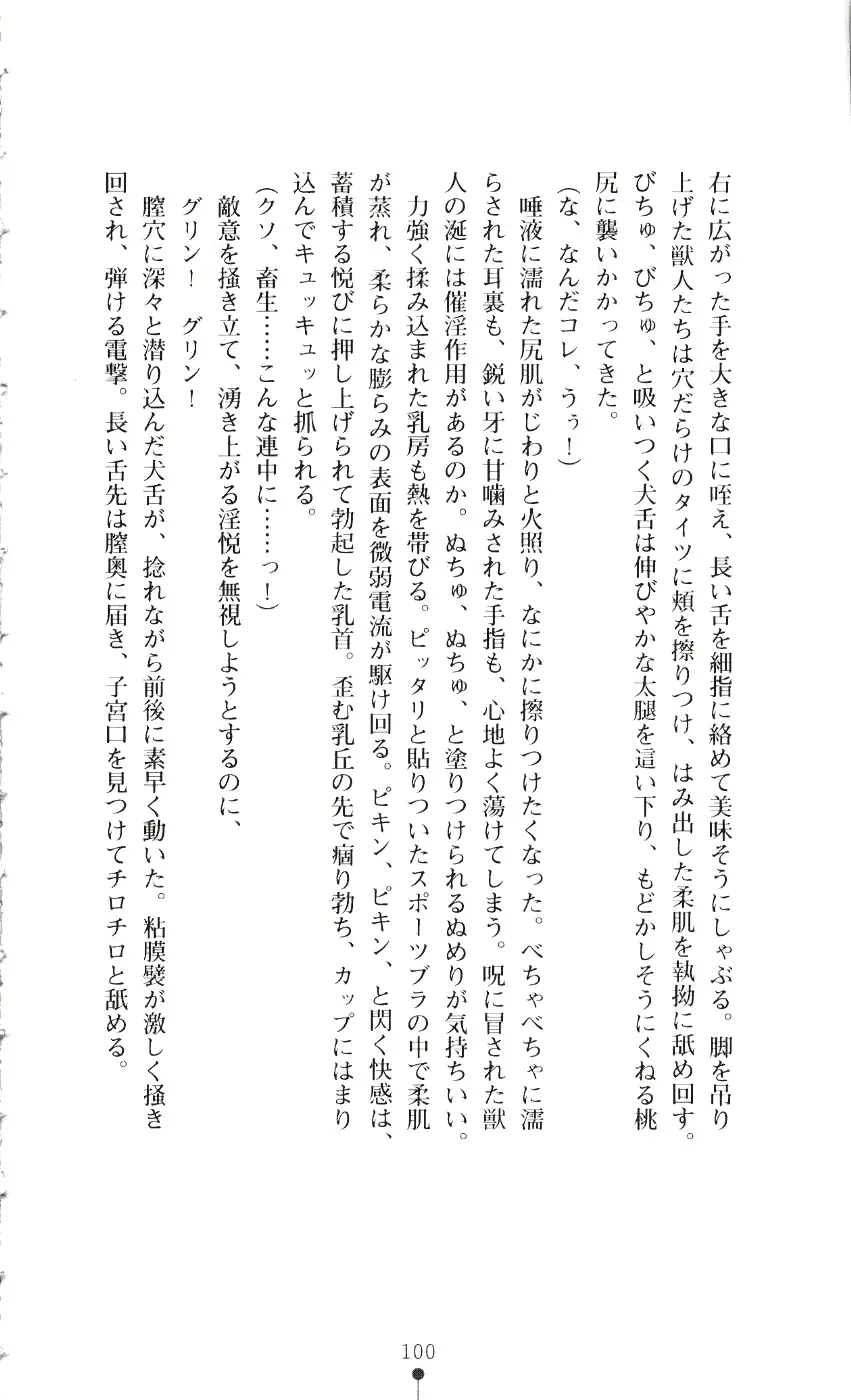 右に広がった手を大きな口に咥え、長い舌を細指に絡めて美味そうにしゃぶる。脚を吊り
上げた獣人たちは穴だらけのタイツに頬を擦りつけ、はみ出した柔肌を執拗に舐め回す。
びちゅ、びちゅ、と吸いつく犬舌は伸びやかな太腿を這い下り、もどかしそうにくねる桃
尻に襲いかかってきた。
(な、なんだコレ、うぅ！)
唾液に濡れた尻肌がじわりと火照り、なにかに擦りつけたくなった。べちゃべちゃに濡
らされた耳裏も、鋭い牙に甘噛みされた手指も、心地よく蕩けてしまう。呪に冒された獣
人の涎には催淫作用があるのか。ぬちゅ、ぬちゅ、と塗りつけられるぬめりが気持ちいい。
力強く揉み込まれた乳房も熱を帯びる。ピッタリと貼りついたスポーツブラの中で柔肌
が蒸れ、柔らかな膨らみの表面を微弱電流が駆け回る。ピキン、ピキン、と閃く快感は、
蓄積する悦びに押し上げられて勃起した乳首。歪む乳丘の先で痼り勃ち、カップにはまり
込んでキュッキュッと抓られる。
(クソ、畜生……こんな連中に……っ！)
敵意を掻き立て、湧き上がる淫悦を無視しようとするのに、
グリン！　グリン！
膣穴に深々と潜り込んだ犬舌が、捻れながら前後に素早く動いた。粘膜襞が激しく掻き
回され、弾ける電撃。長い舌先は膣奥に届き、子宮口を見つけてチロチロと舐める。
100